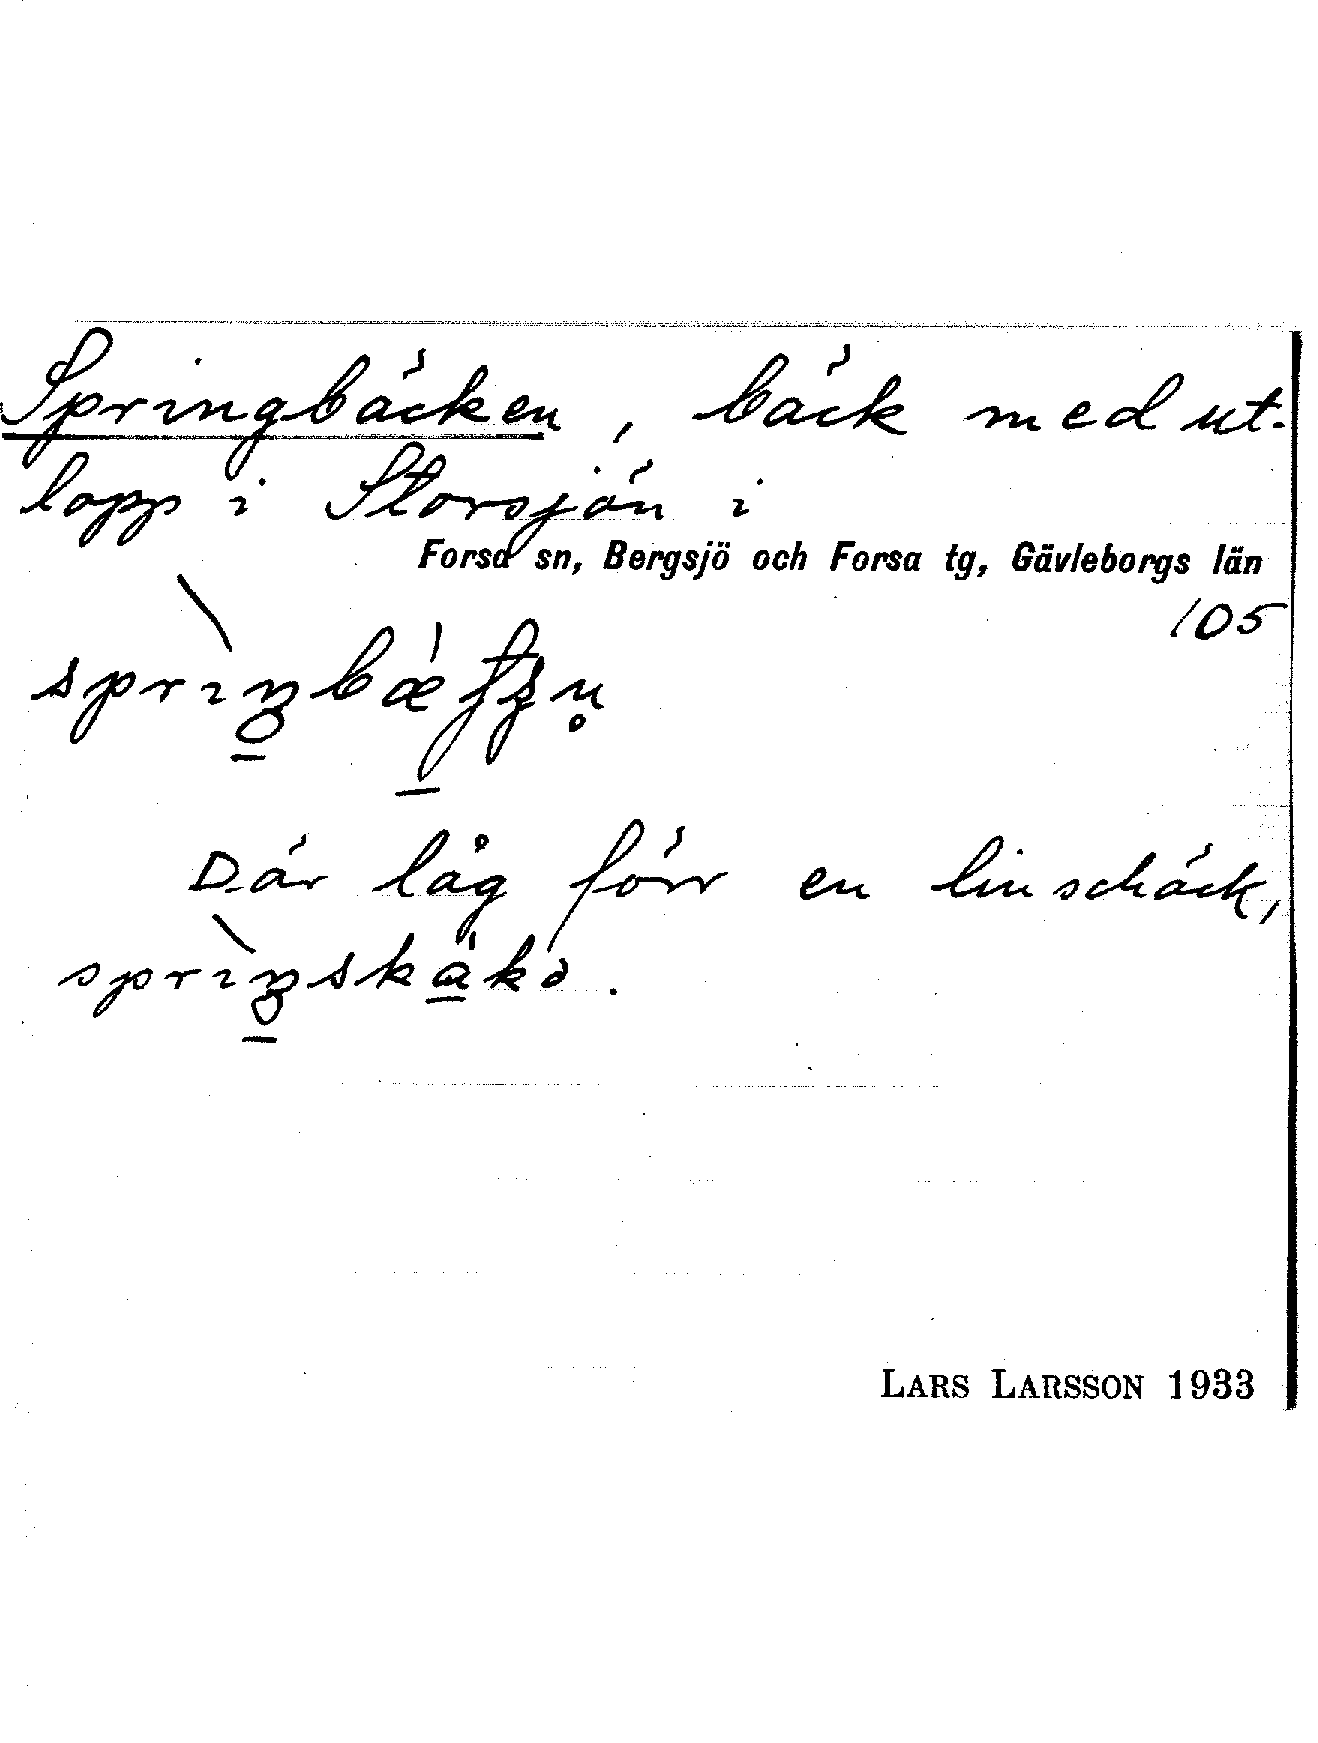 Springbäcken, bäck med ut-
lopp i Storsjön i
Forsa sn, Bergsjö och Forsa tg, Gävleborgs län
105
Där låg förr en linschäck,
LARS LARSSON 1933